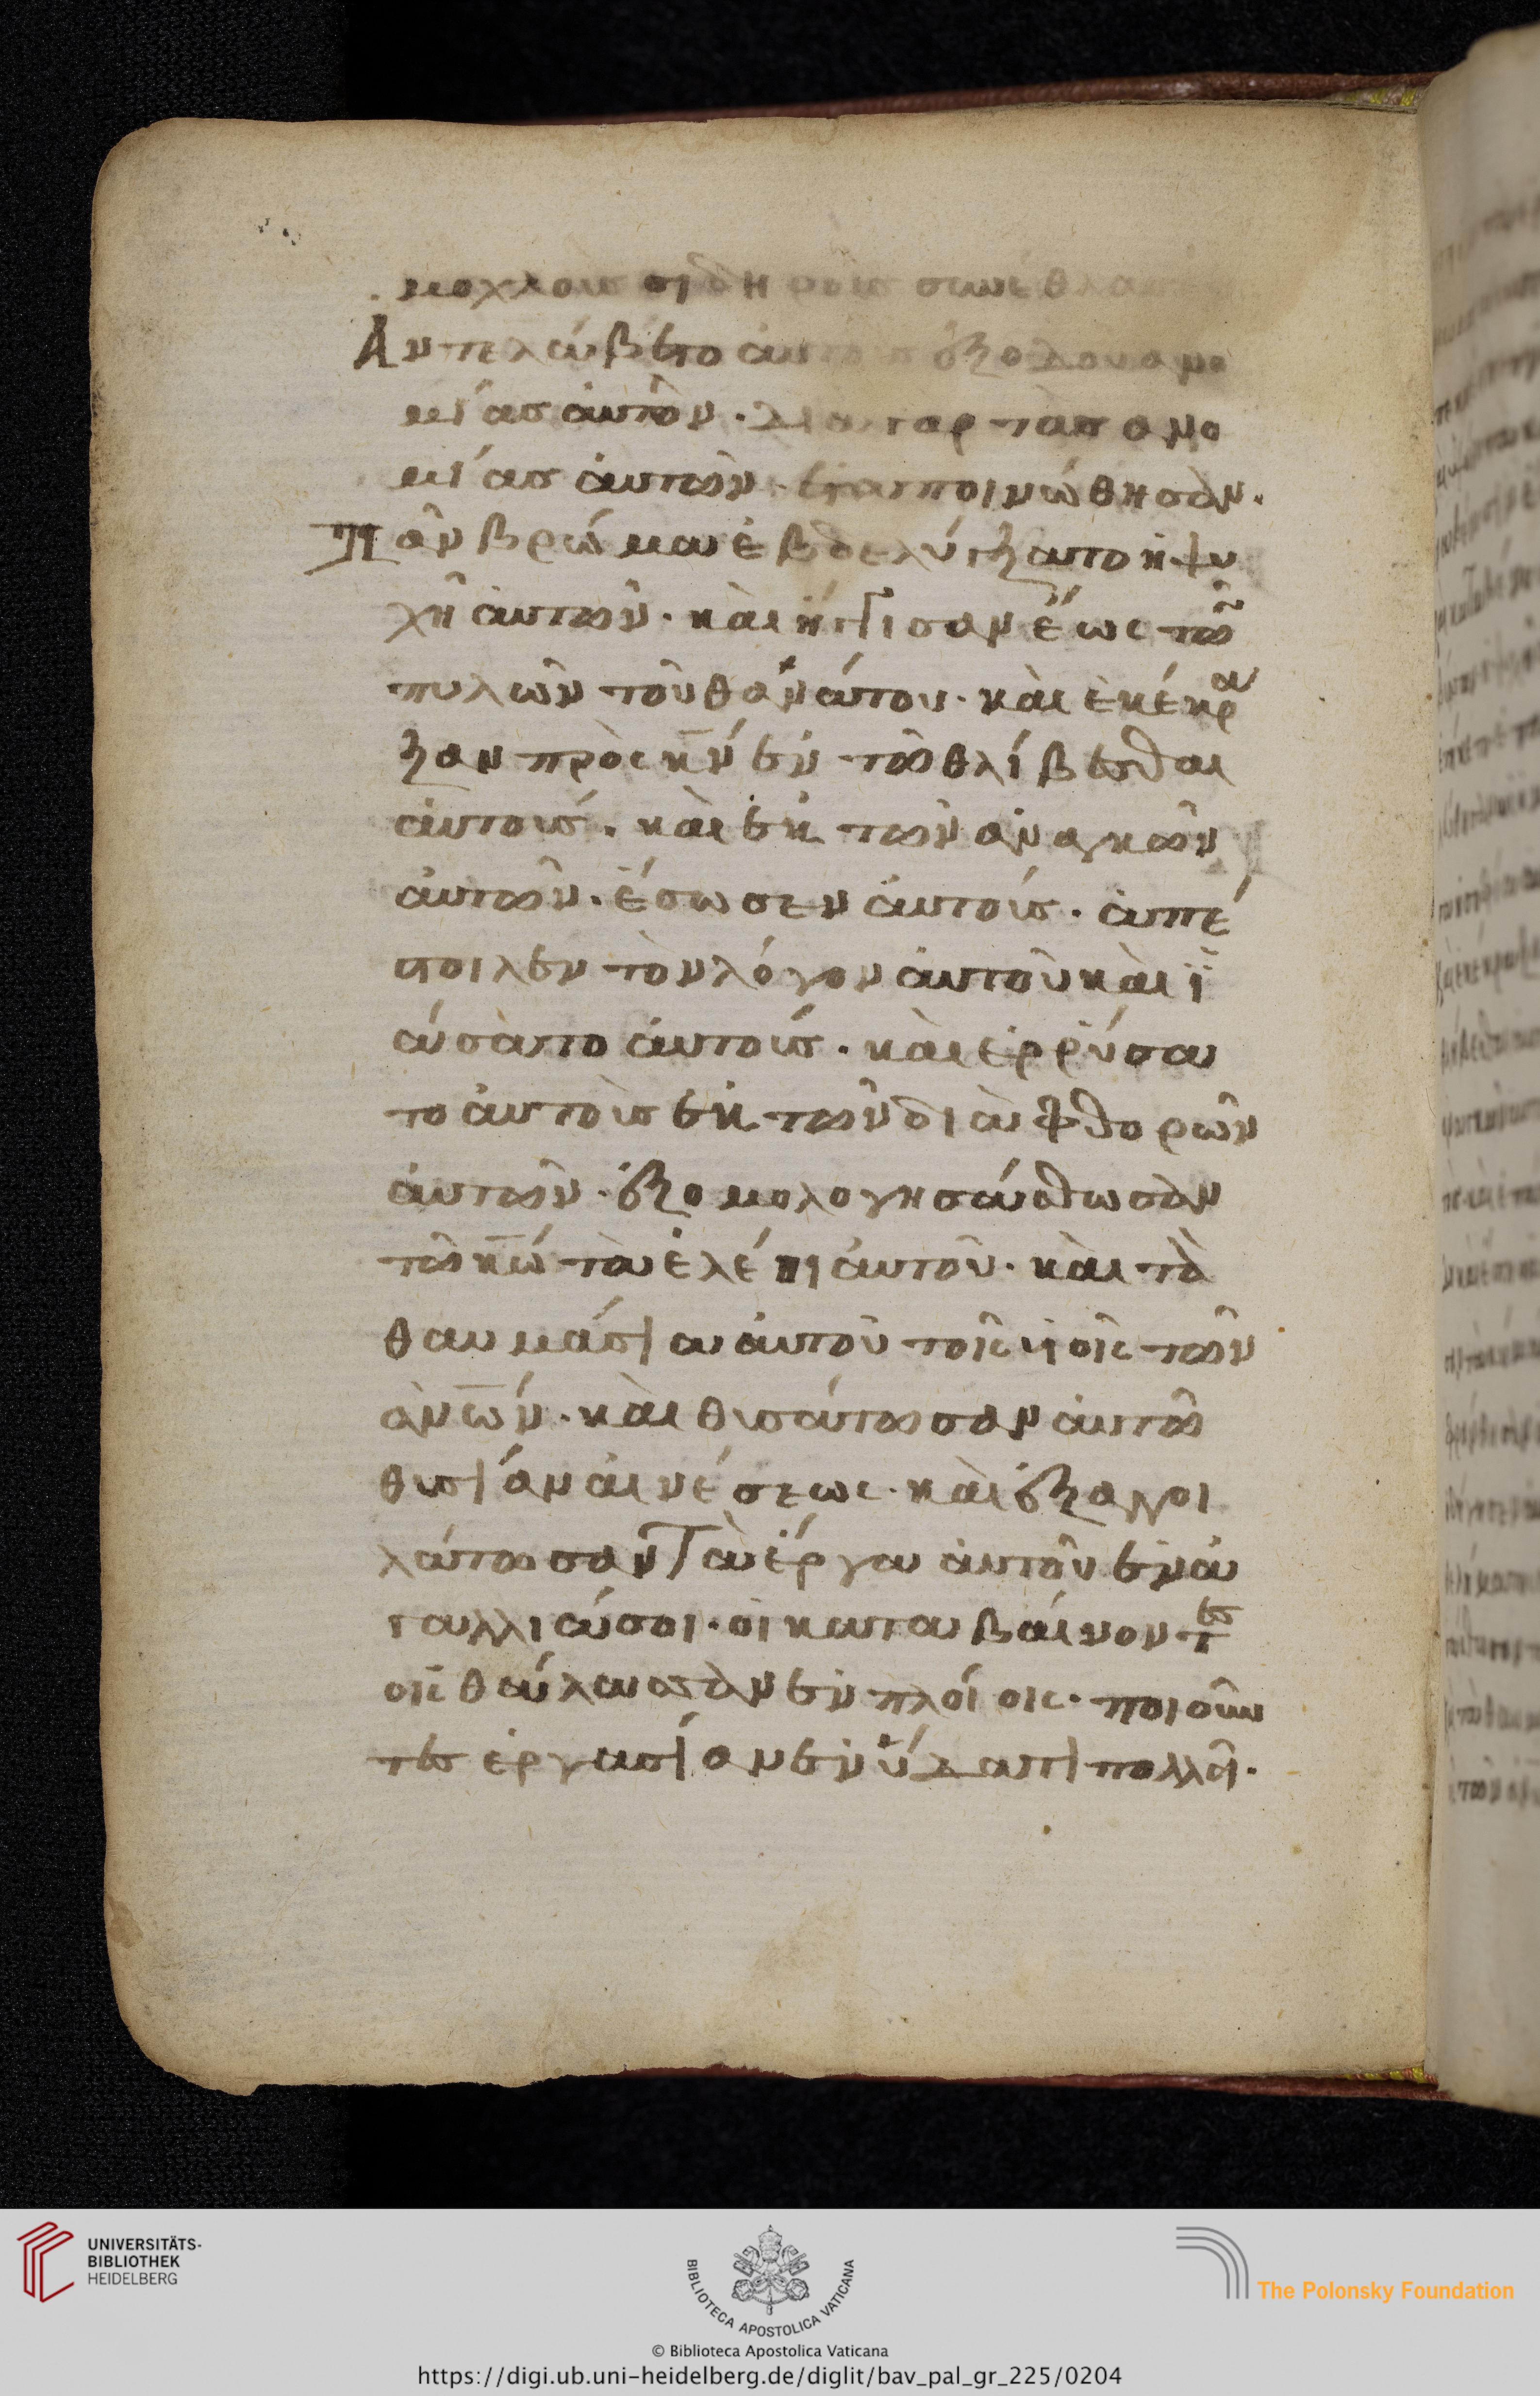 μοχλοὺς σιδηροῦς συνέθλασεν
Ἀντελάβετο αὐτῶν ἐξ ὁδοῦ ἀνο
μίας αὐτῶν. διὰ γὰρ τὰς ἀνο
μίας αὐτῶν ἐταπεινώθησαν.
Πᾶν βρῶμα ἐβδελύξατο ἡ ψυ
χὴ αὐτῶν. καὶ ἤγγισαν ἕως τῶ
πυλῶν τοῦ θανάτου. καὶ ἐκέκρα
ξαν πρὸς κν̅ ἐν τῶ θλίβεσθαι
αὐτούς. καὶ ἐκ τῶν ἀναγκῶν
αὐτῶν. ἔσωσεν αὐτούς. ἀπέ
στειλεν τὸν λόγον αὐτοῦ καὶ ϊ
άσατο αὐτούς. καὶ ἐρρύσα
το αὐτοὺς ἐκ τῶν διαφθορῶν
αὐτῶν. ἐξομολογησάσθωσαν
τῶ κω̅ τὰ ἐλέη αὐτοῦ. καὶ τὰ
θαυμάσια αὐτοῦ τοῖς υἱοῖς τῶν
ἀν̅ων. καὶ θυσάτωσαν αὐτῶ
θυσίαν αἰνέσεως. καὶ ἐξαγγει
λάτωσαν τὰ ἔργα αὐτοῦ ἐν ἀ
γαλλιάσει. οἱ καταβαίνοντες
εἰς θάλασσαν ἐν πλοίοις. ποιοῦν
τες ἐργασίαν ἐν ὕδασι πολλοῖ.
UNIVERSITÄTS-
BIBLIOTHEK
HEIDELBERG
BIBLIOTECA APOSTOLICA VATICANA
The Polonsky Foundation
© Biblioteca Apostolica Vaticana
https://digi.ub.uni-heidelberg.de/diglit/bav_pal_gr_225/0204